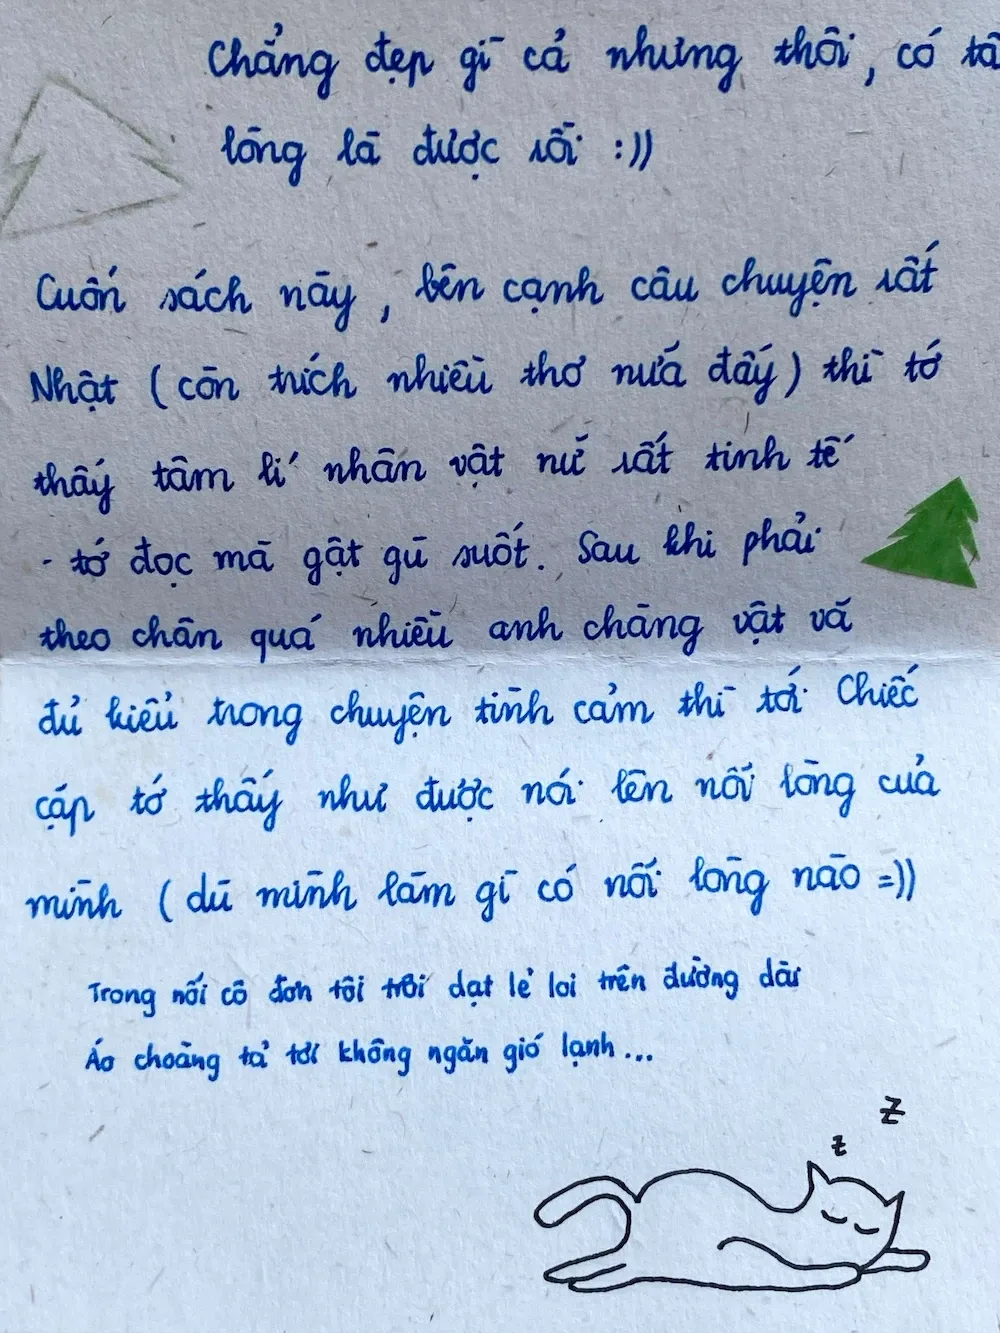 Chẳng đẹp gì cả nhưng thôi, có
lòng là được rồi :))
Cuốn sách này, bên cạnh câu chuyện rất
Nhật (còn trích nhiều thơ nữa đấy) thì tớ
thấy tâm lí nhân vật nữ rất tinh tế
- tớ đọc mà gật gù suốt. Sau khi phải
theo chân quá nhiều anh chàng vật vã
đủ kiểu trong chuyện tình cảm thì tới Chiếc
cặp tớ thấy như được nói lên nỗi lòng của
mình (dù mình làm gì có nỗi lòng nào =))
Trong nỗi cô đơn tôi trôi dạt lẻ loi trên đường dài
Áo choàng tả tơi không ngăn gió lạnh...
z
z